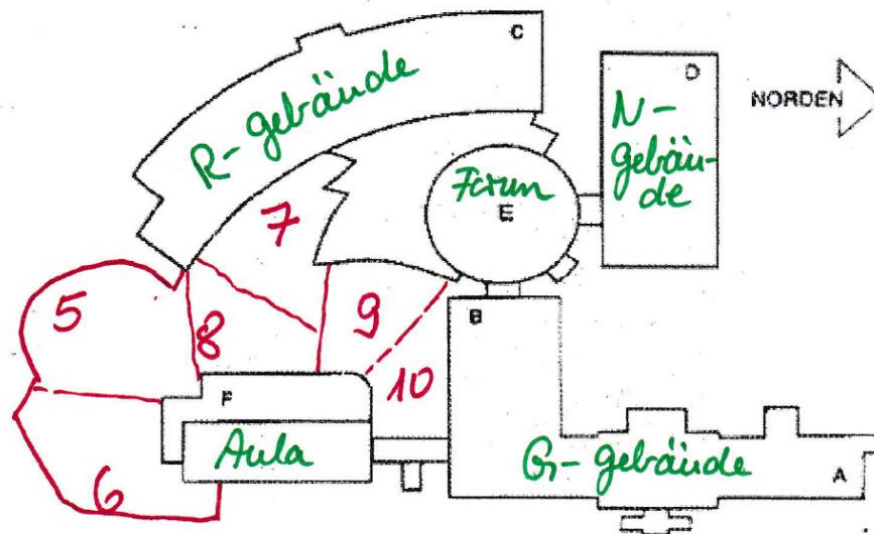 C
R-gebäude
D
N-
gebäu-
de
NORDEN
Forum
E
7
5
8
9
B
10
F
Aula
G-gebäude
A
6